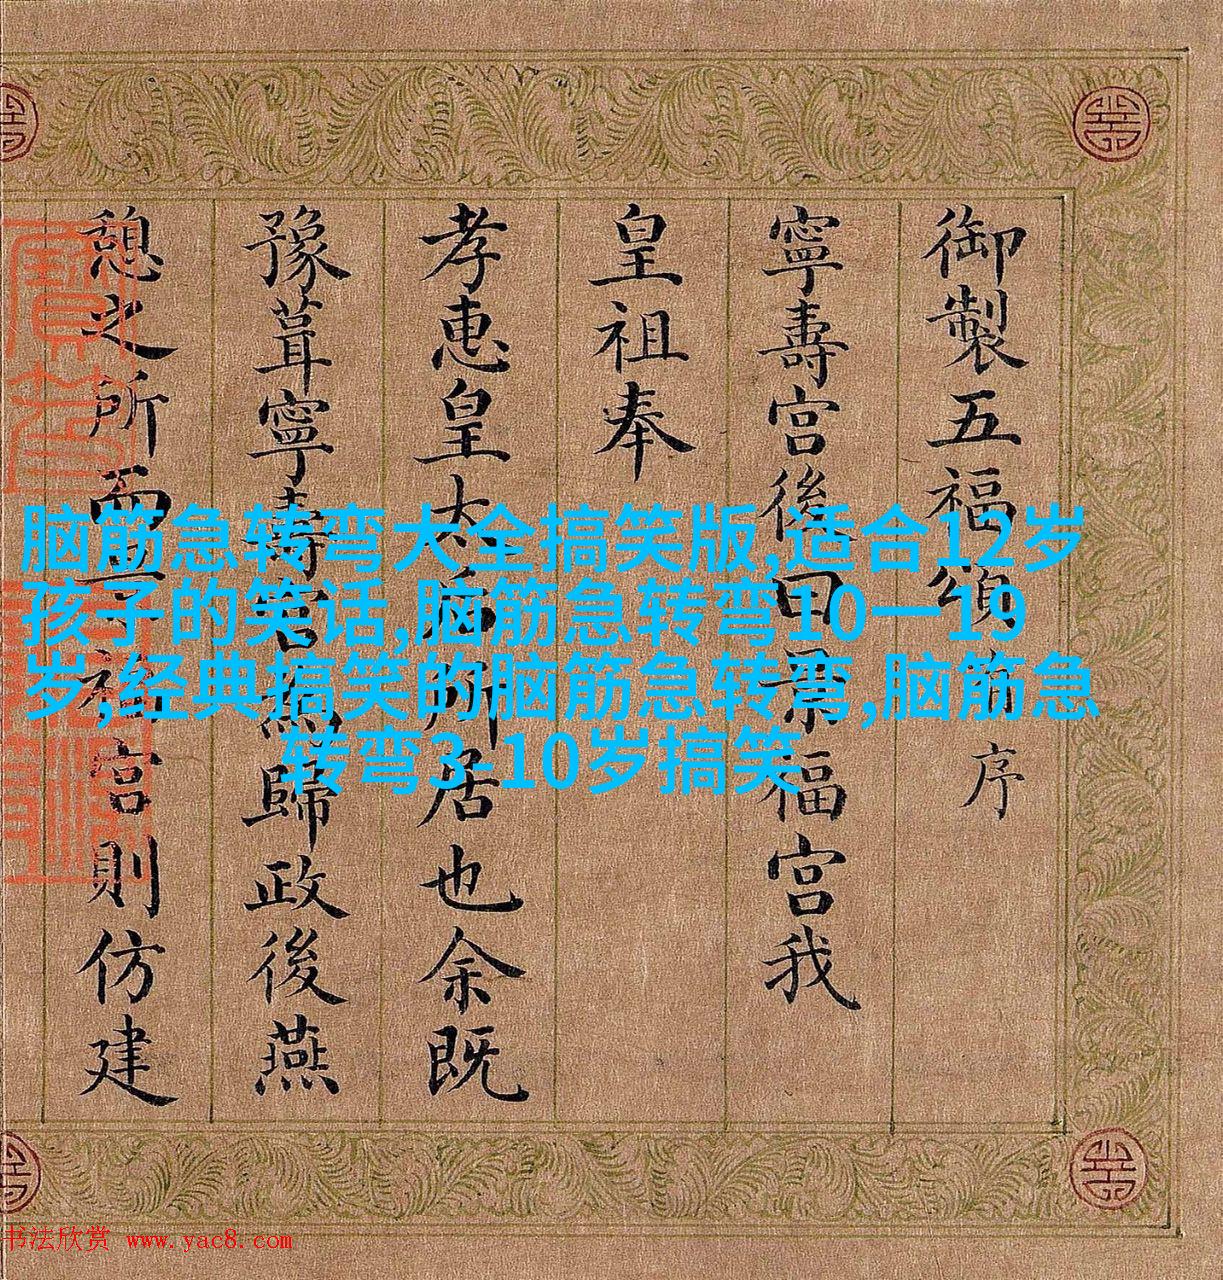 御製五福頌有序
寧壽宮後曰景福宮我
皇祖奉
孝惠皇太后所居也余既
豫葺寧壽宮為歸政後燕
憩之所而景福宮則仿建
脑筋急转弯大全搞笑版,适合12岁
孩子的笑话,脑筋急转弯10一19
岁,经典搞笑的脑筋急转弯,脑筋急
转弯3-10岁搞笑
书法欣赏 www.yac8.com